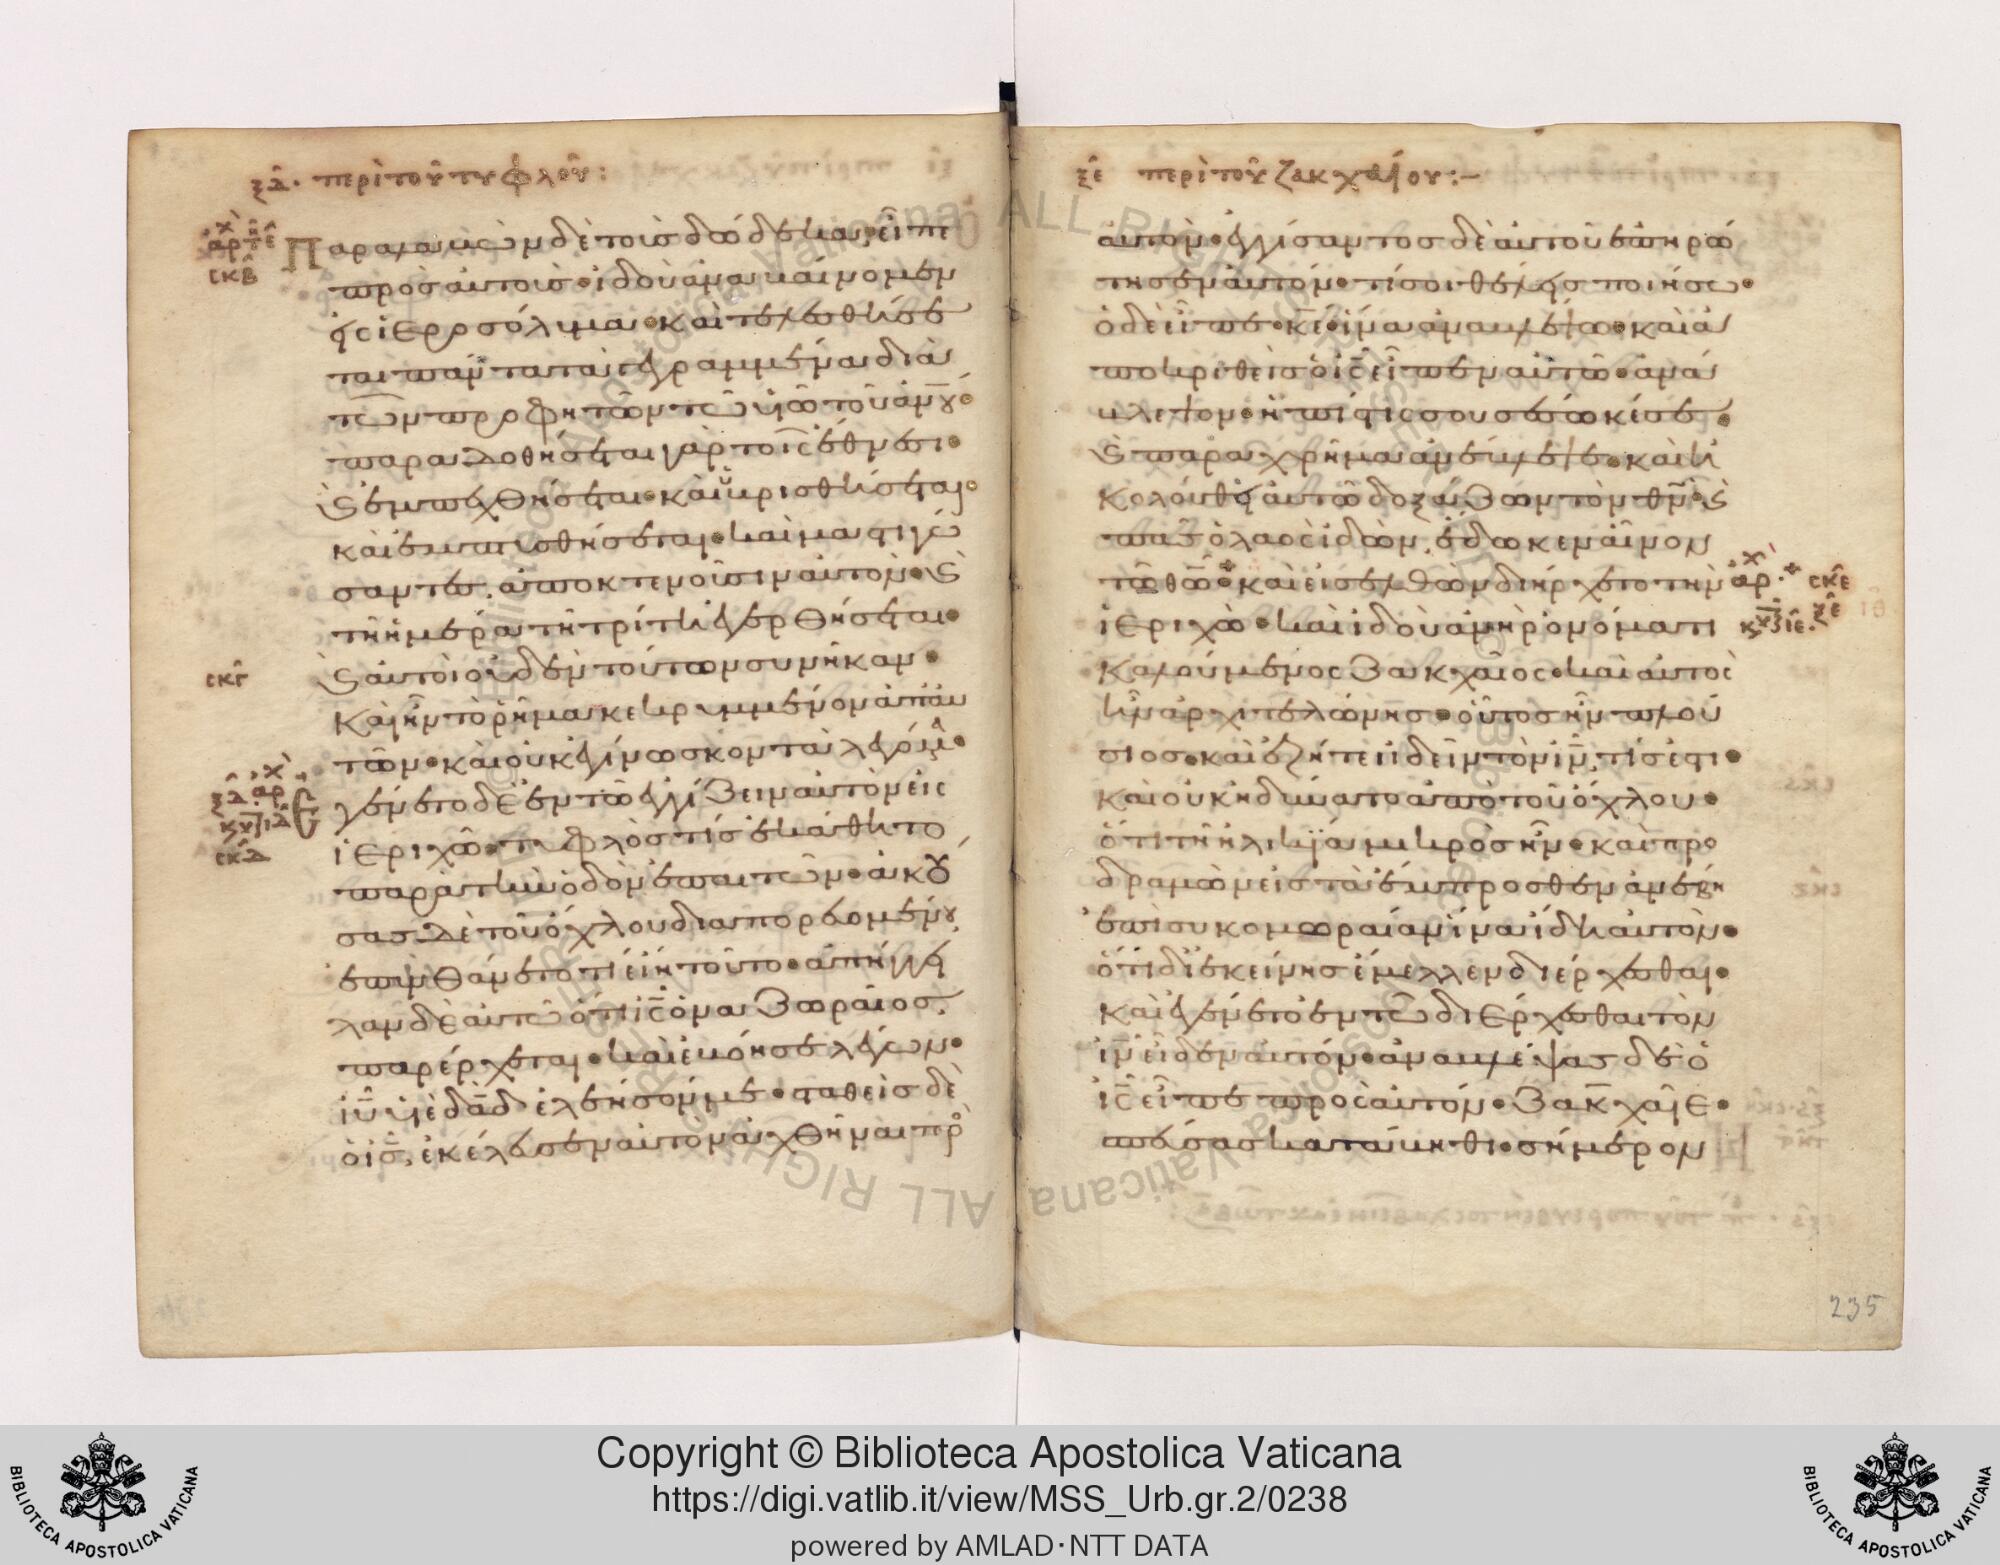 ξδ. περὶ τοῦ τυφλοῦ:
Παραλαβὼν δὲ τοὺς δώδεκα, εἶπε
πρὸς αὐτούς· ἰδοὺ ἀναβαίνομεν
εἰς ἱεροσόλυμα· καὶ τελεσθήσε
ται πάντα τὰ γεγραμμένα διὰ
τῶν προφητῶν τῶ υἱῶ τοῦ ἀνου·
παραδοθήσεται γὰρ τοῖς ἔθνεσι·
καὶ ἐμπαχθήσεται· καὶ ὑβρισθήσεται·
καὶ ἐμπτυσθήσεται· καὶ μαστιγώ
σαντες, ἀποκτενοῦσιν αὐτόν· καὶ
τῆ ἡμέρα τῆ τρίτη ἐγερθήσεται·
καὶ αὐτοὶ οὐδὲν τούτων συνῆκαν·
καὶ ἦν τὸ ῥῆμα κεκρυμμένον ἀπ' αὐ
τῶν· καὶ οὐκ ἐγίνωσκον τὰ λεγόμενα·
γένετο δὲ ἐν τῶ ἐγγίζειν αὐτὸν εἰς
ἱεριχῶ· τυφλός τις ἐκάθητο
παρὰ τὴν ὁδὸν ἐπαιτῶν· ἀκού
σας δὲ τοῦ ὄχλου διαπορευομένου,
ἐπυνθάνετο τί εἴη τοῦτο· ἀπήγγει
λαν δὲ αὐτῶ ὅτι ις ὁ ναζωραῖος,
παρέρχεται· καὶ ἐβόησε λέγων·
ιυ υἱὲ δαδ ἐλέησόν με· σταθεὶς δὲ
ὁ ις, ἐκέλευσεν αὐτὸν ἀχθῆναι πρὸς
ξε περὶ τοῦ ζακχαίου:–
αὐτόν· ἐγγίσαντος δὲ αὐτοῦ ἐπηρώ
τησεν αὐτόν· τί σοι θέλεις ποιήσω·
ὁ δὲ εἶπε· κε· ἵνα ἀναβλέψω· καὶ ἀ
ποκριθεὶς ὁ ις εἶπεν αὐτῶ· ἀνά
βλεψον· ἡ πίστις σου σέσωκέ σε·
καὶ παραχρῆμα ἀνέβλεψε· καὶ ἠ
κολούθει αὐτῶ δοξάζων τὸν θν· καὶ
πᾶς ὁ λαὸς ἰδὼν, ἔδωκεν αἶνον
τῶ θω· καὶ εἰσελθὼν διήρχετο τὴν
ἱεριχώ· καὶ ἰδοὺ ἀνὴρ ὀνόματι
καλούμενος ζακχαῖος· καὶ αὐτὸς
ἦν ἀρχιτελώνης· οὗτος ἦν πλού
σιος· καὶ ἐζήτει ἰδεῖν τὸν ιν, τίς ἐστι·
καὶ οὐκ ἠδύνατο ἀπὸ τοῦ ὄχλου·
ὅτι τῆ ἡλικία μικρὸς ἦν· καὶ προ
δραμὼν εἰς τὰ ἔμπροσθεν ἀνέβη
ἐπὶ συκομωραίαν ἵνα ἴδη αὐτόν·
ὅτι δι' ἐκείνης ἔμελλεν διέρχεσθαι·
καὶ ἐγένετο ἐν τῶ διέρχεσθαι τὸν
ιν, εἶδεν αὐτόν· ἀναβλέψας δὲ ὁ
ις εἶπε πρὸς αὐτόν· ζακχαῖε·
σπεύσας κατάβηθι· σήμερον
235
Copyright © Biblioteca Apostolica Vaticana
https://digi.vatlib.it/view/MSS_Urb.gr.2/0238
powered by AMLAD·NTT DATA
BIBLIOTECA APOSTOLICA VATICANA
BIBLIOTECA APOSTOLICA VATICANA